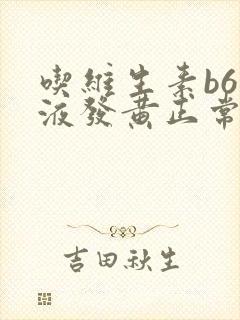 喫維生素b6
液發黃正常
吉田秋生